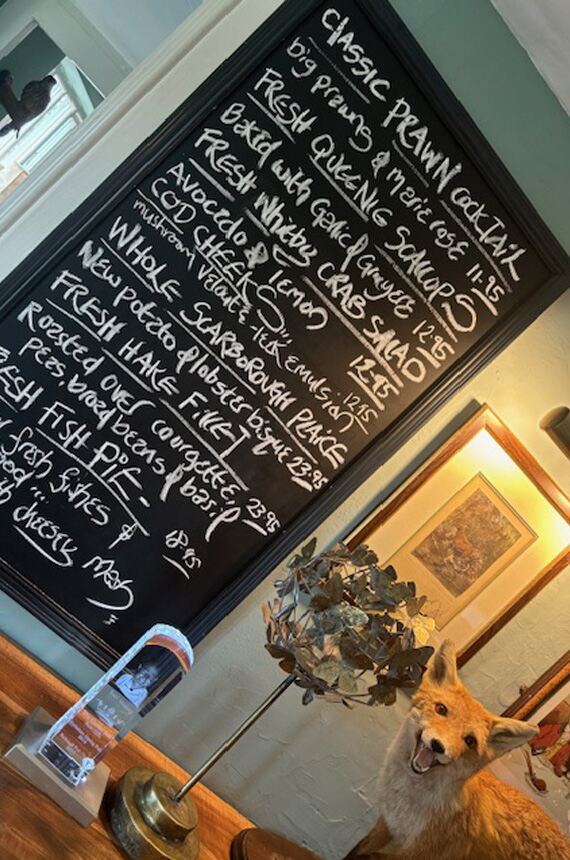 CLASSIC PRAWN COCKTAIL
big prawns & marie rose 11.95
FRESH QUEENIE SCALLOPS
Baked with Garlic & Gruyere 12.95
FRESH Whitby CRAB SALAD
AVOCADO & lemon 12.95
COD CHEEKS
mushroom veloute, leek emulsion 12.95
WHOLE SCARBOROUGH PLAICE
New potato & lobster bisque 23.95
FRESH HAKE FILLET
Roasted over courgette,
peas, broad beans & basil 23.95
FRESH FISH PIE-
fresh fishes &
18.95
cheesey Mash